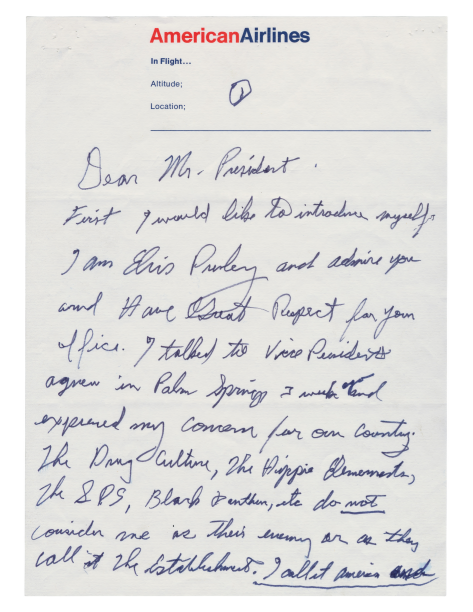 AmericanAirlines
In Flight...
Altitude;
Location;
①
Dear Mr. President.
First I would like to introduce myself.
I am Elvis Presley and admire you
and Have Great Respect for your
office. I talked to Vice President
agnew in Palm Springs 3 weeks and
expressed my concern for our country.
The Drug Culture, The Hippie Elements,
The SDS, Black Panthers, etc do not
consider me as their enemy or as they
call it The Establishment. I call it america and